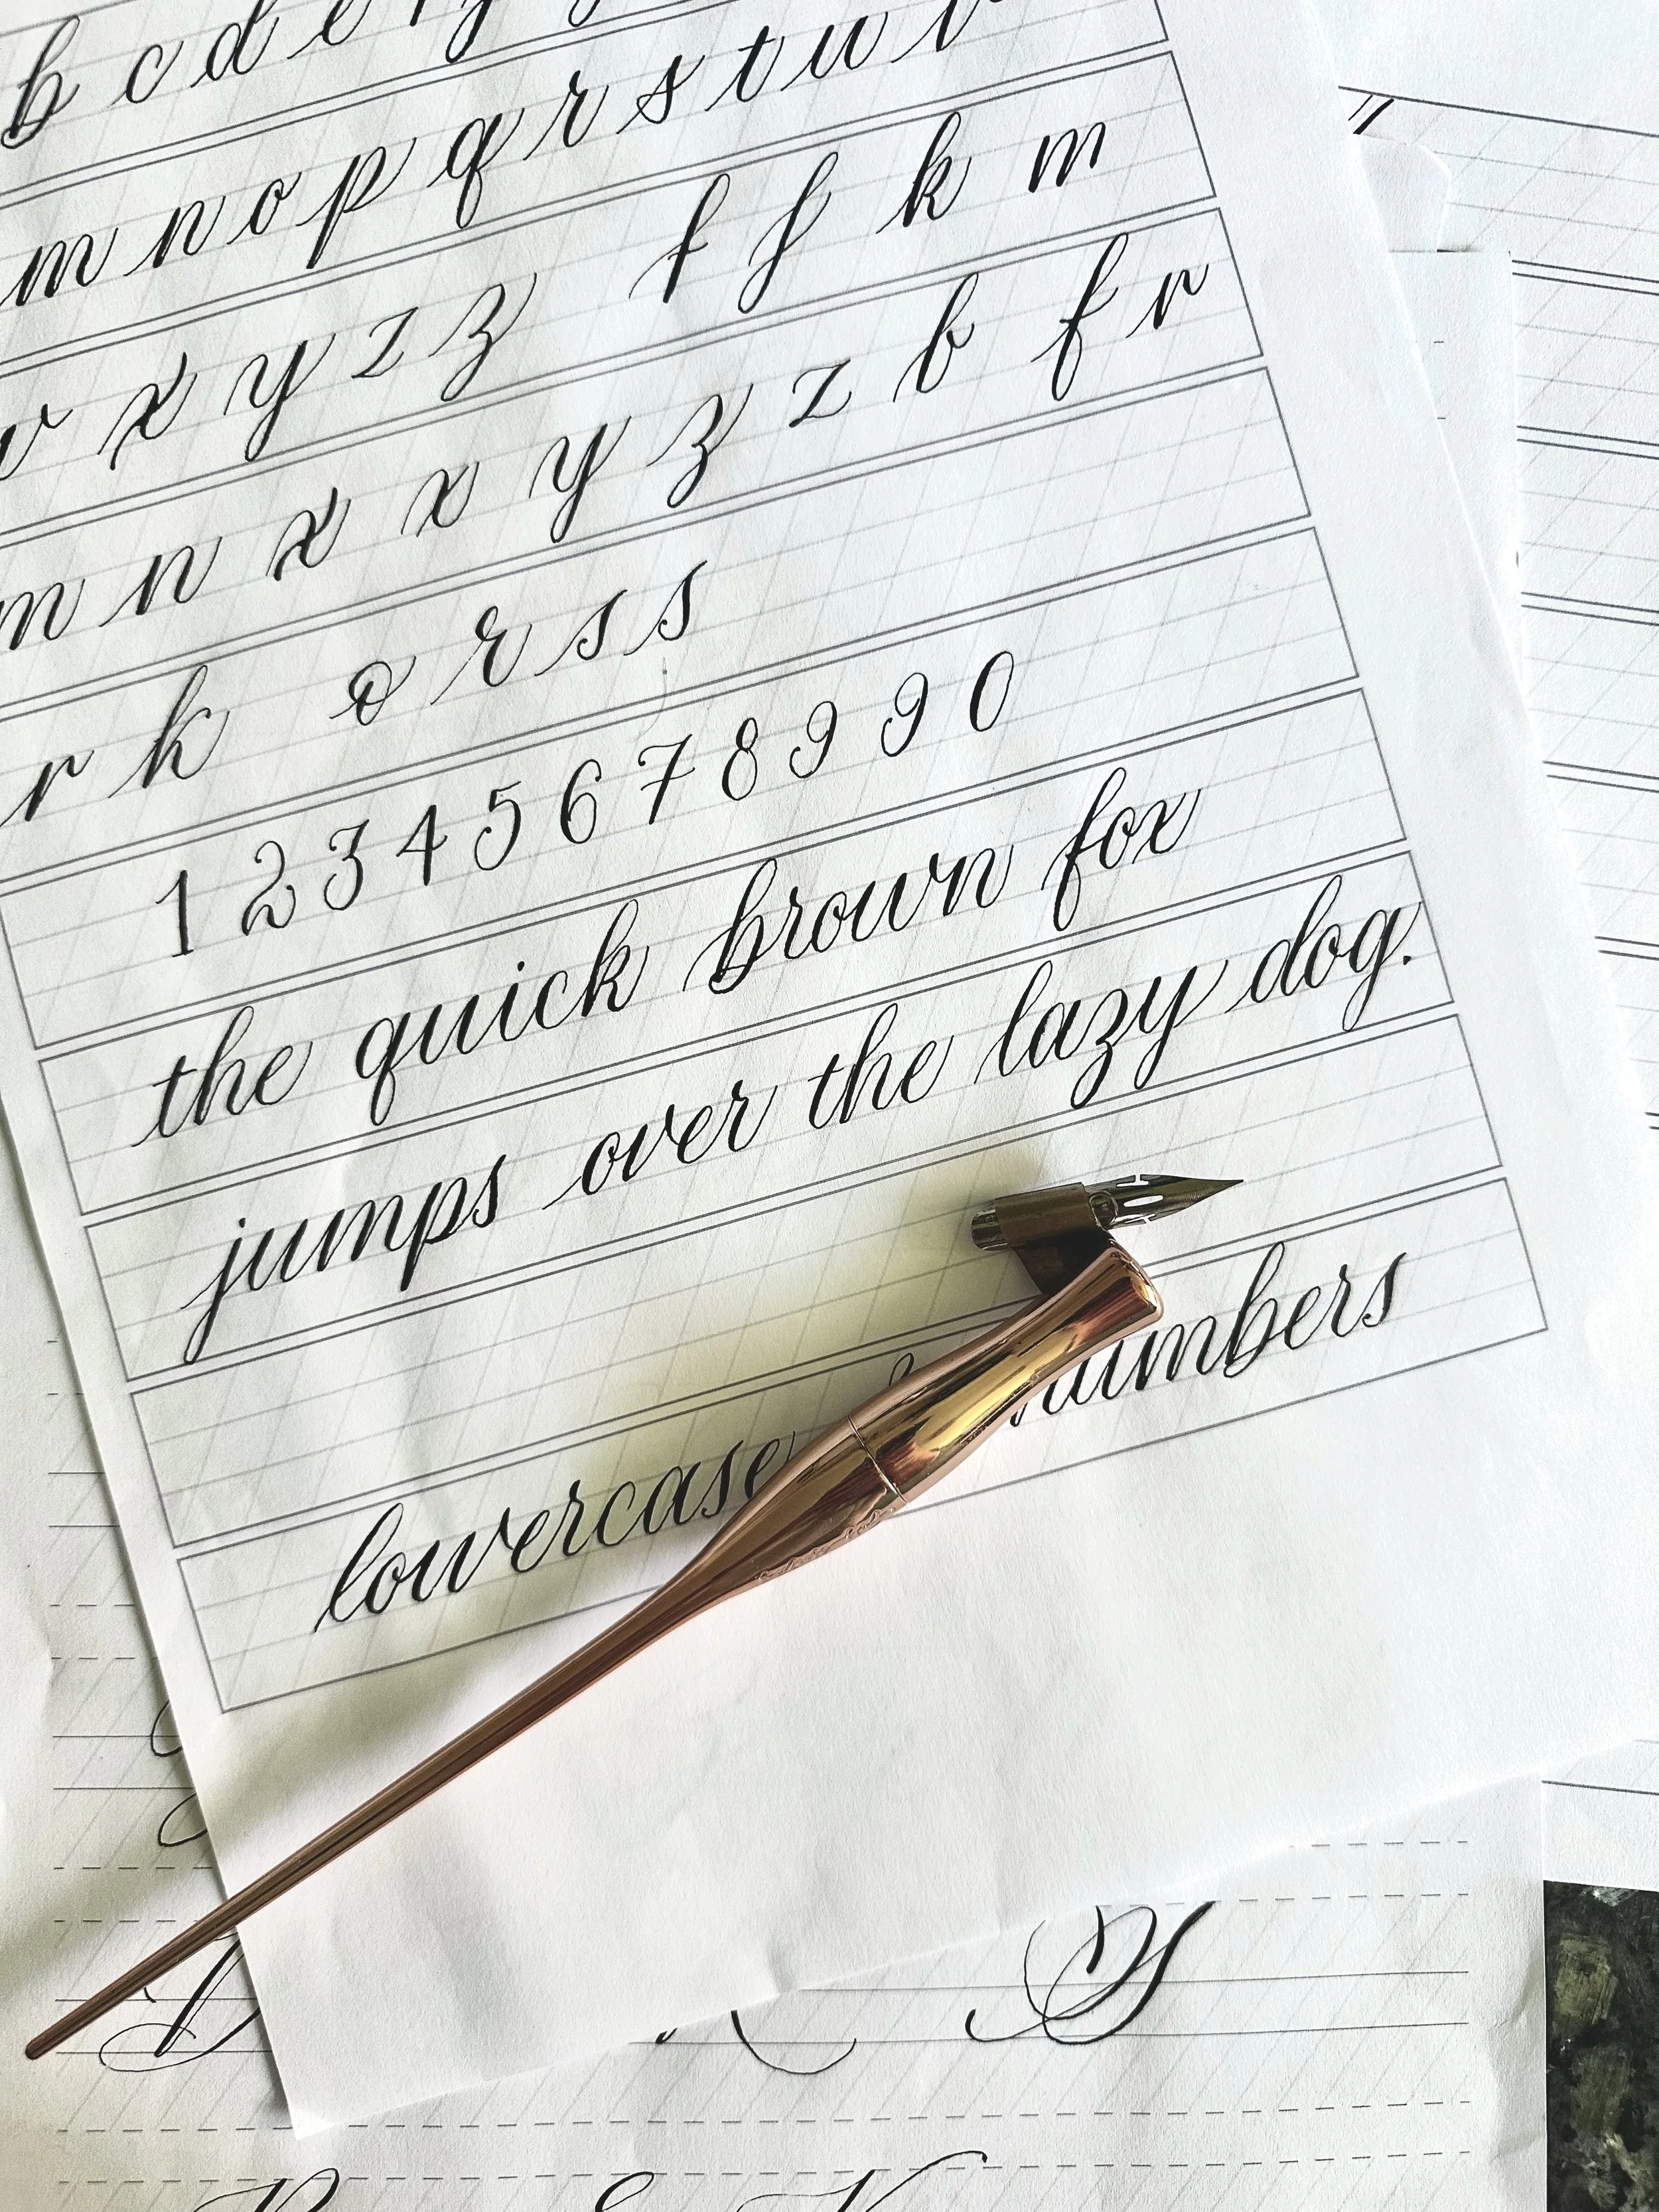 b c d e
m n o p q r s t u v
v x y z z f f k m
m n x x y z z b f r
r k o r s s
1 2 3 4 5 6 7 8 9 9 0
the quick brown fox
jumps over the lazy dog.
lowercase numbers